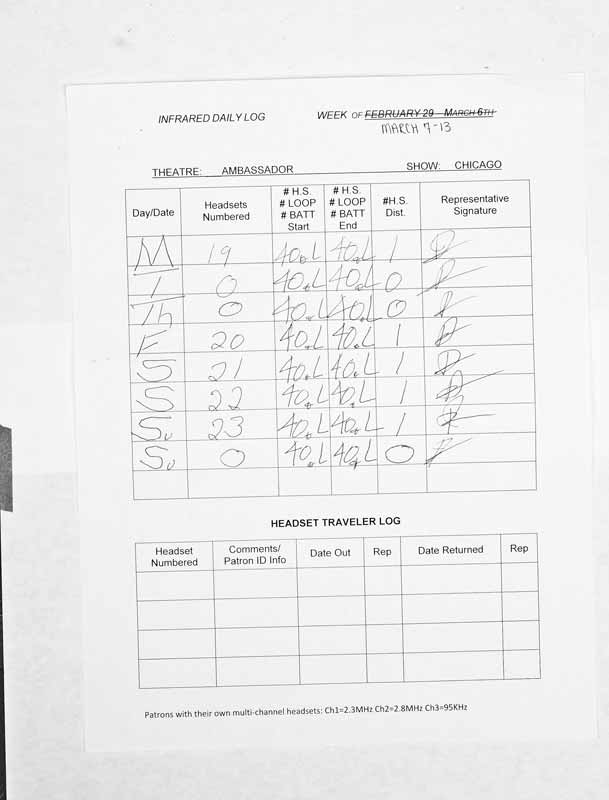 INFRARED DAILY LOG WEEK OF FEBRUARY 29 – MARCH 6TH
MARCH 7-13
THEATRE: AMBASSADOR SHOW: CHICAGO
Day/Date Headsets Numbered # H.S. # LOOP # BATT Start # H.S. # LOOP # BATT End #H.S. Dist. Representative Signature
M 19 40 L 40 L 1
T 0 40 L 40 L 0
Th 0 40 L 40 L 0
F 20 40 L 40 L 1
S 21 40 L 40 L 1
S 22 40 L 40 L 1
Su 23 40 L 40 L 1
Su 0 40 L 40 L 0
HEADSET TRAVELER LOG
Headset Numbered Comments/ Patron ID Info Date Out Rep Date Returned Rep
Patrons with their own multi-channel headsets: Ch1=2.3MHz Ch2=2.8MHz Ch3=95KHz